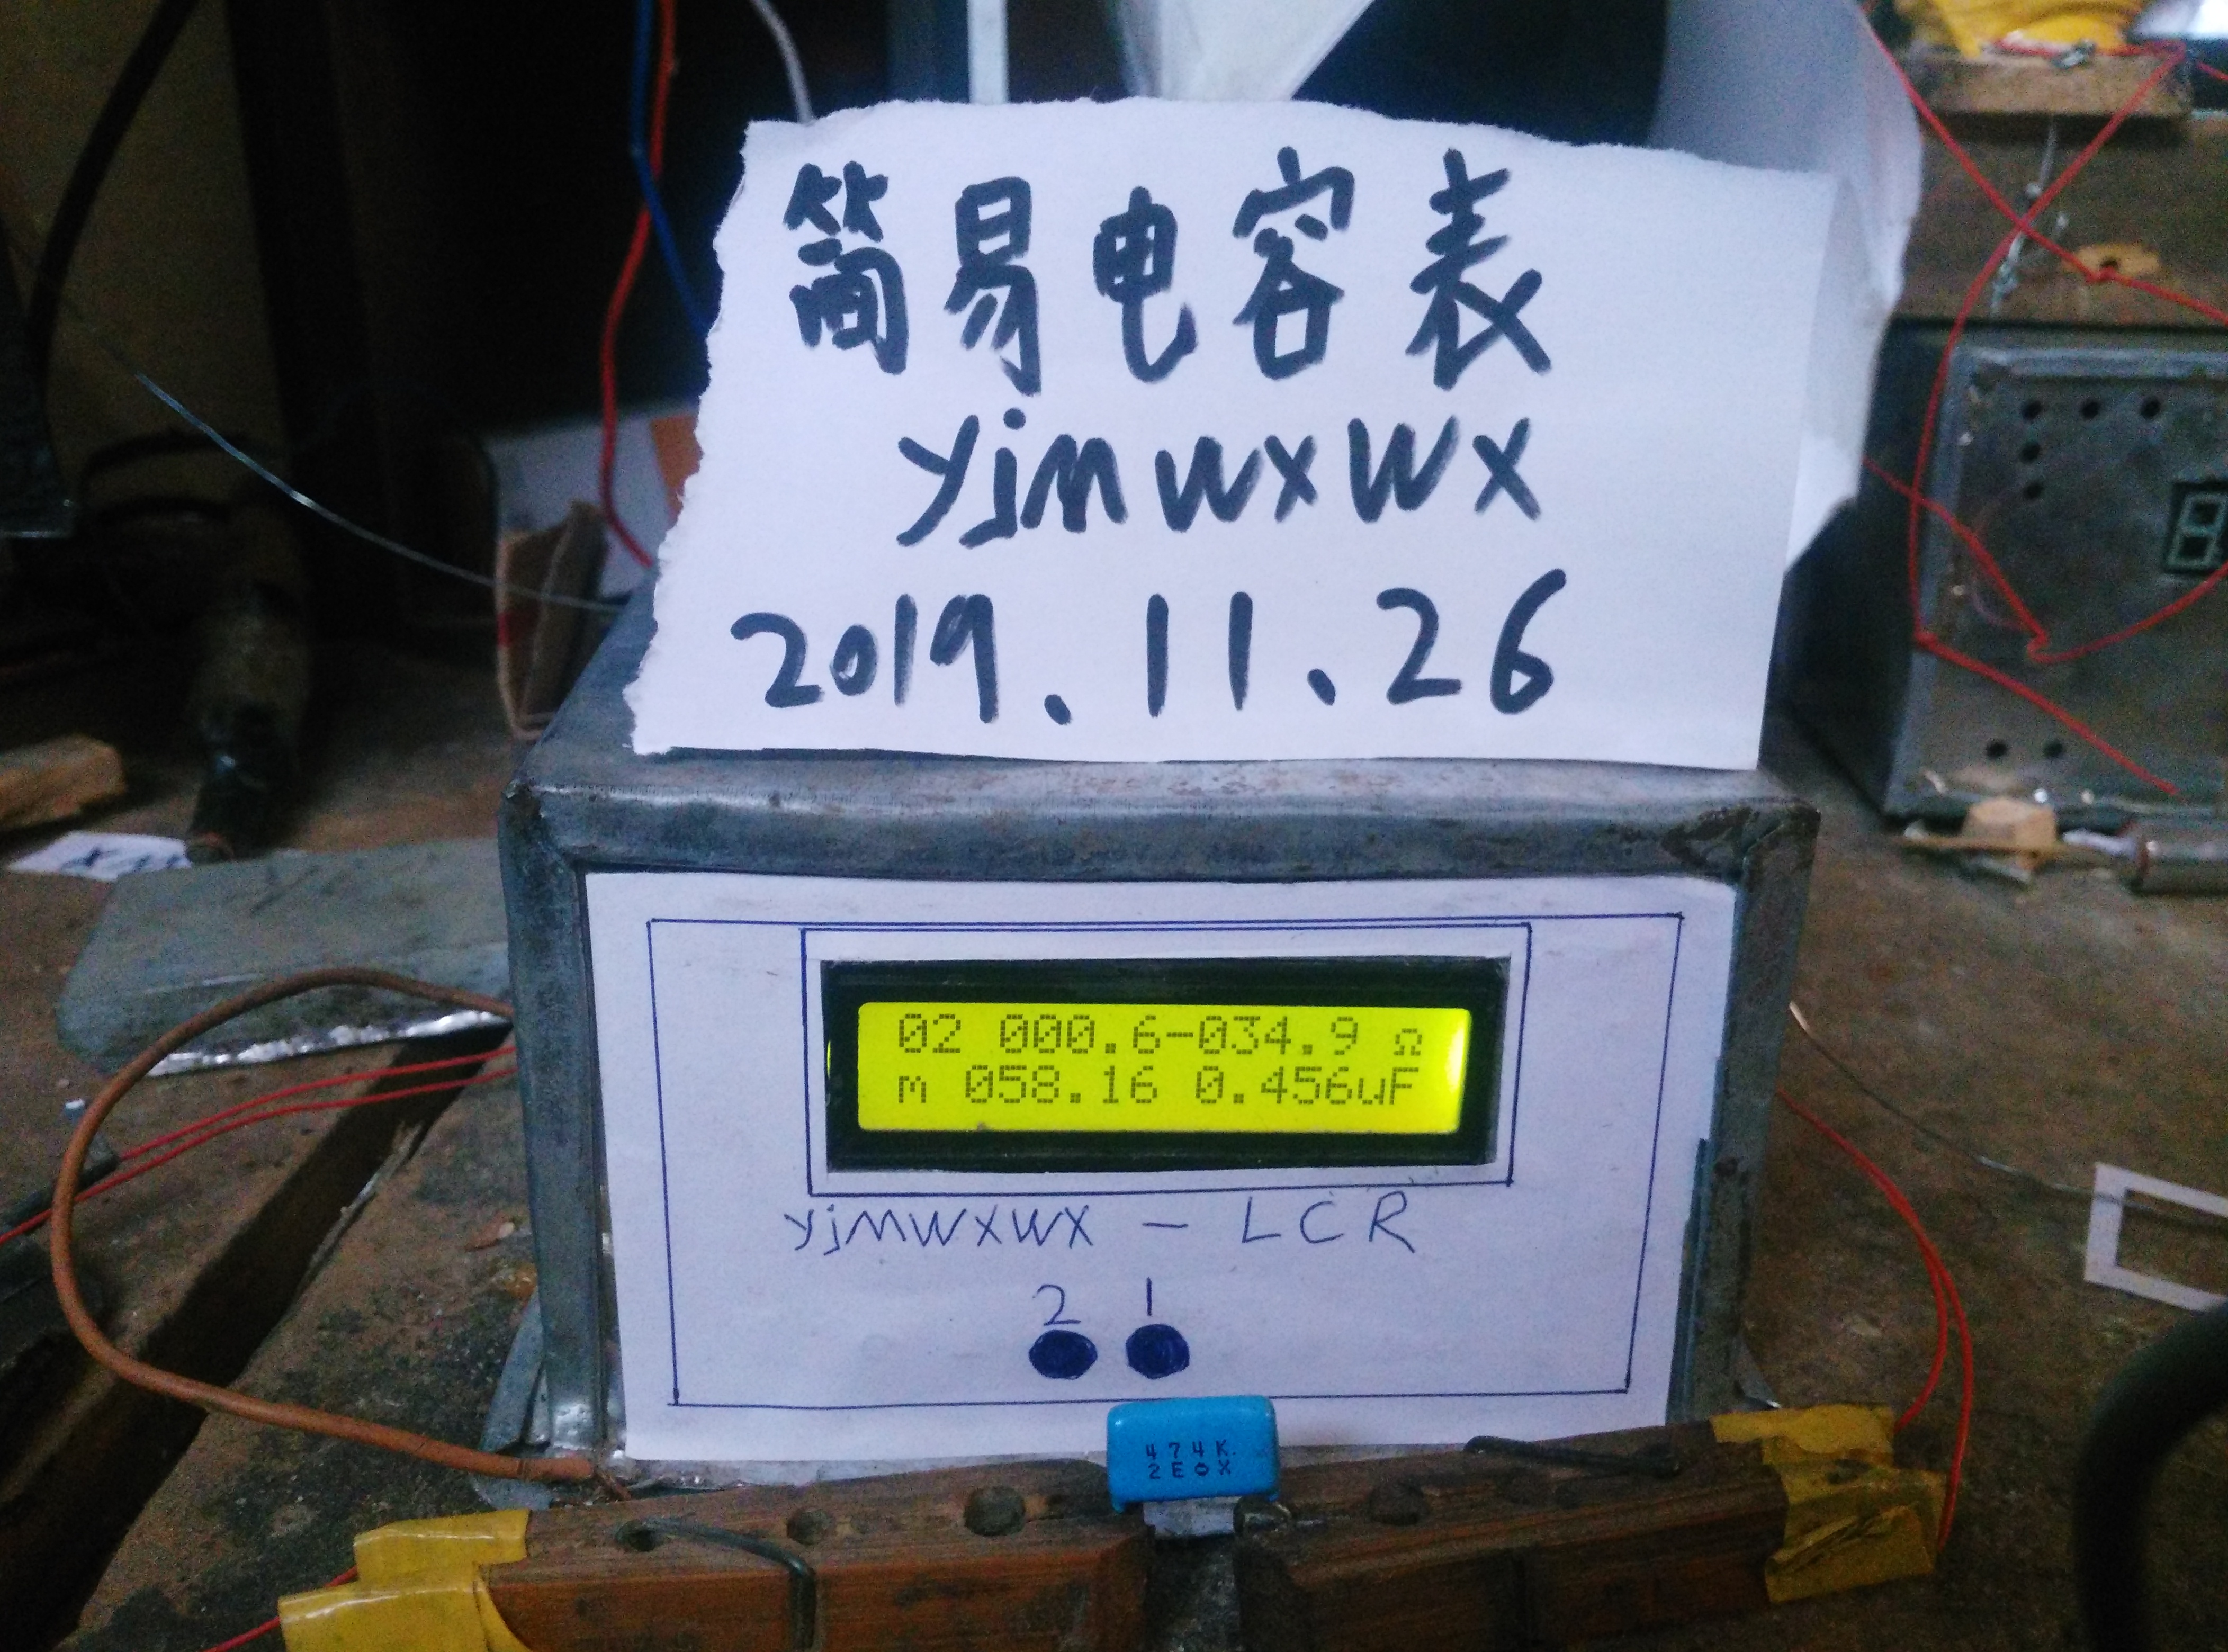 简易电容表
yjmwxwx
2019.11.26
02 000.6-034.9 Ω
m 058.16 0.456uF
yjmwxwx - LCR
2 1
474K